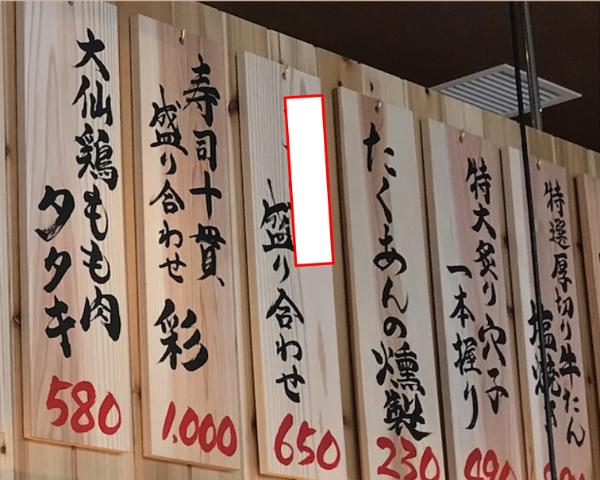 大仙鶏もも肉
タタキ
580
寿司十貫
盛り合わせ 彩
1,000
盛り合わせ
650
たくあんの燻製
230
特大炙り穴子
一本握り
490
特選厚切り牛たん
塩焼き